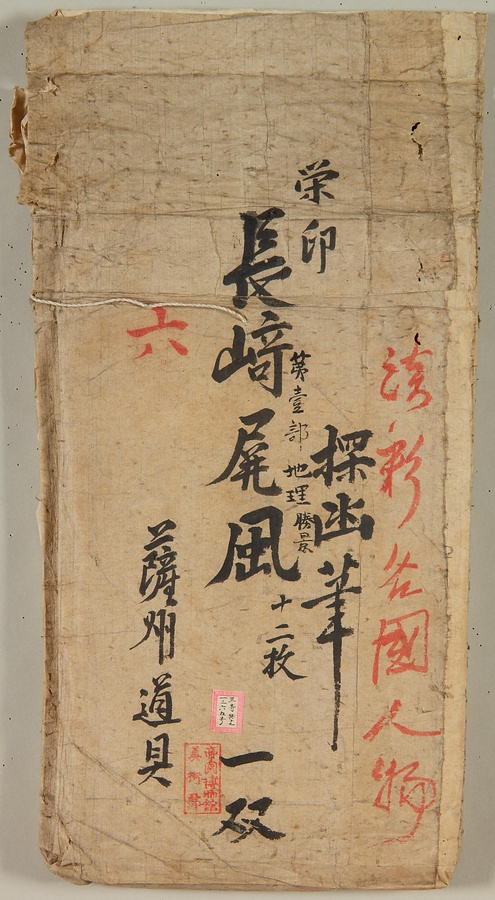 淡彩各國人物
探幽筆
榮印
第壹部 地理勝景
十二枚
長﨑屏風 一双
薩州道具
六
帝國博物館
美術部